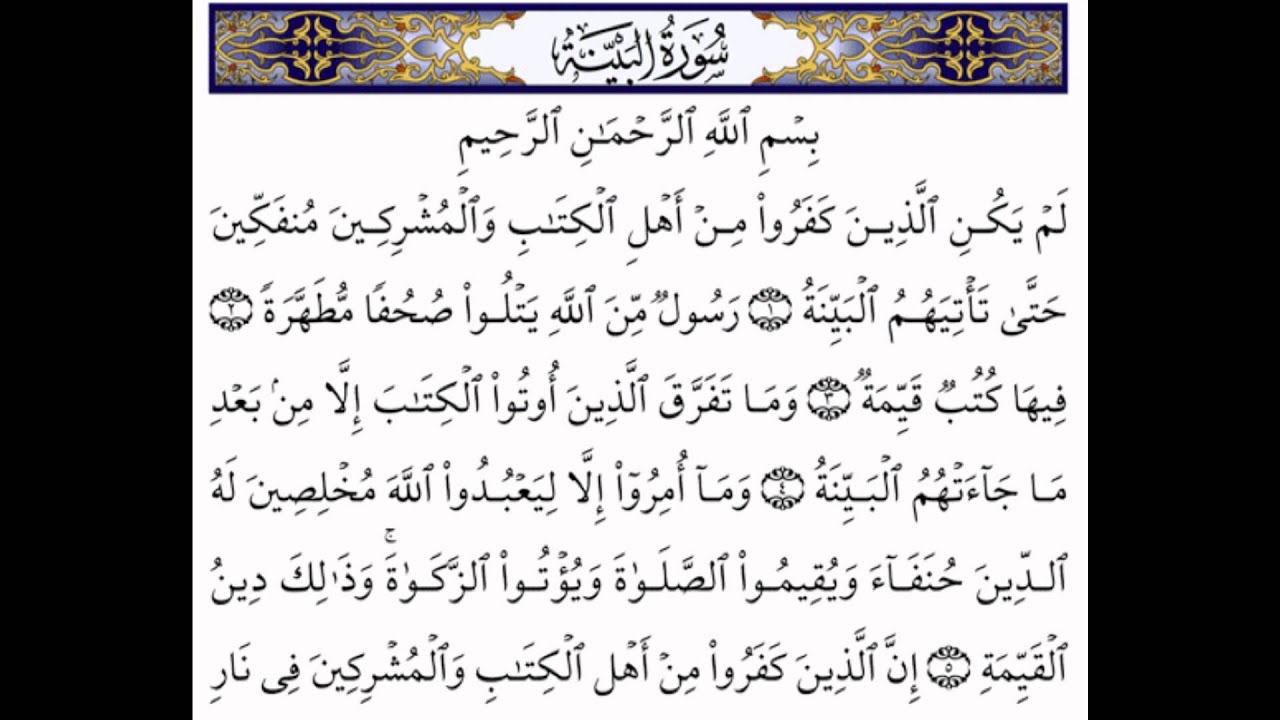 سُورَةُ البَيِّنَةِ
بِسْمِ ٱللَّهِ ٱلرَّحْمَـٰنِ ٱلرَّحِيمِ
لَمْ يَكُنِ ٱلَّذِينَ كَفَرُوا۟ مِنْ أَهْلِ ٱلْكِتَـٰبِ وَٱلْمُشْرِكِينَ مُنفَكِّينَ
حَتَّىٰ تَأْتِيَهُمُ ٱلْبَيِّنَةُ ١ رَسُولٌ مِّنَ ٱللَّهِ يَتْلُوا۟ صُحُفًا مُّطَهَّرَةً ٢
فِيهَا كُتُبٌ قَيِّمَةٌ ٣ وَمَا تَفَرَّقَ ٱلَّذِينَ أُوتُوا۟ ٱلْكِتَـٰبَ إِلَّا مِنۢ بَعْدِ
مَا جَآءَتْهُمُ ٱلْبَيِّنَةُ ٤ وَمَآ أُمِرُوٓا۟ إِلَّا لِيَعْبُدُوا۟ ٱللَّهَ مُخْلِصِينَ لَهُ
ٱلدِّينَ حُنَفَآءَ وَيُقِيمُوا۟ ٱلصَّلَوٰةَ وَيُؤْتُوا۟ ٱلزَّكَوٰةَ ۚ وَذَٰلِكَ دِينُ
ٱلْقَيِّمَةِ ٥ إِنَّ ٱلَّذِينَ كَفَرُوا۟ مِنْ أَهْلِ ٱلْكِتَـٰبِ وَٱلْمُشْرِكِينَ فِى نَارِ